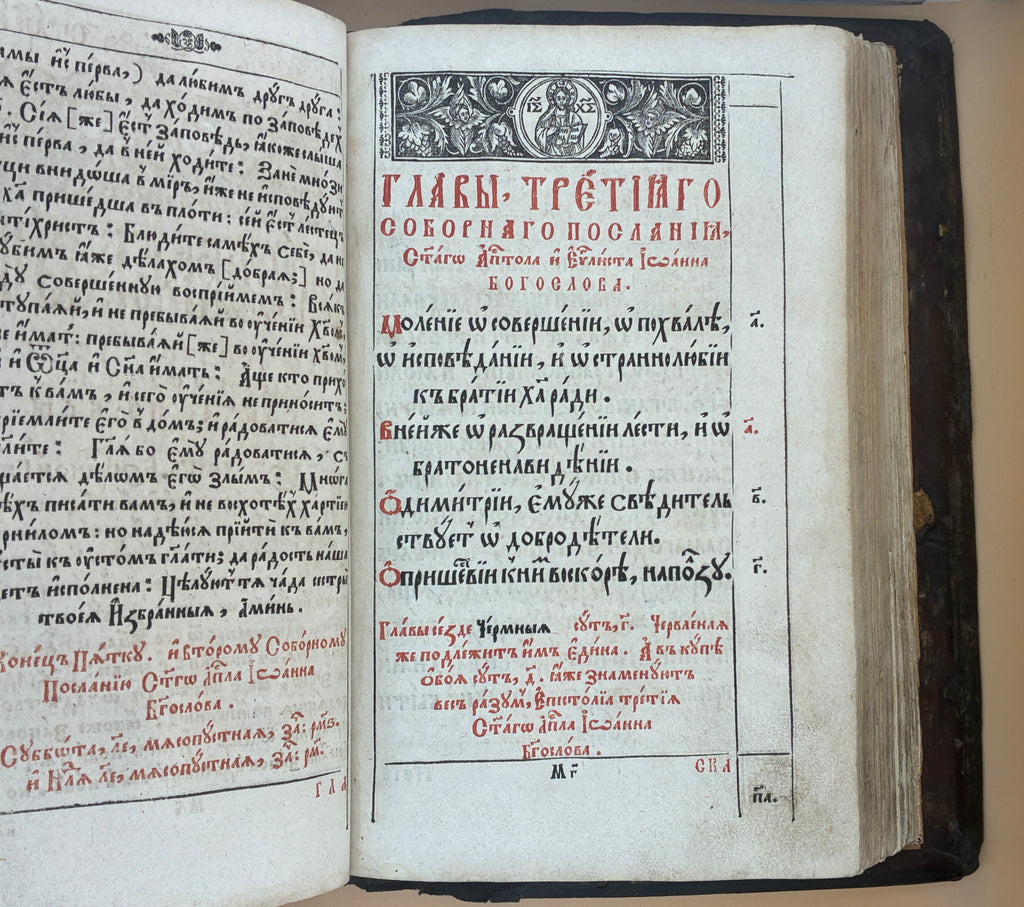 амы и҆с пе́рва,) да лю́бимъ дрꙋ́гъ дрꙋ́га:
є҆́сть любы̀, да хо́димъ по за́повѣдех
. Сїѧ̀ [же] є҆́сть за́повѣдь, ꙗ҆́коже слы́ша
и҆с пе́рва, да в не́й хо́дите: Занѐ мно́зи
внидо́ша в мі́ръ, и҆̀же не и҆сповѣ́дꙋют
ха̀ прише́дша въ пло́ти: се́й є҆́сть лесте́цъ
нті́христъ: Блюди́те саме́хъ себѐ, да не
гꙋ́бимъ ꙗ҆̀же дѣ́лахомъ [до́браѧ;] но да
дꙋ̀ соверше́ннꙋю воспрїи́мемъ: Всѧ́къ
стꙋпа́ѧй, и҆ не пребыва́ѧй во ᲂу҆че́нїи Хв҃ом,
не и҆́мат: пребыва́ѧй [же] во ᲂу҆че́нїи Хв҃ом,
и҆ Ѻ҆ц҃а и҆ Сн҃а и҆́мать: А҆́ще кто прихо
къ ва́мъ, и҆ сегѡ̀ ᲂу҆че́нїѧ не прино́ситъ;
прїе́млите є҆го̀ в до́мъ; и҆ ра́доватисѧ є҆мꙋ̀
гл҃ите: Гл҃ѧ́й бо є҆мꙋ̀ ра́доватисѧ, с
ща́етсѧ дѣлѡ́мъ є҆гѡ̀ злы́мъ: Мнѡ́га
и҆мѣ́хъ писа́ти ва́мъ, и҆ не восхотѣ́х ха́ртїею
черни́ломъ: но надѣ́юсѧ прїитѝ к ва́мъ,
ᲂу҆сты̀ къ ᲂу҆стѡ́мъ гл҃ати; да ра́дость на́ша
бꙋ́детъ и҆спо́лнена: Цѣлꙋ́ют тѧ ча́да сестры̀
твоеѧ̀ И҆збра́нныѧ, А҆ми́нь.
Коне́цъ Пѧ́ткꙋ. и҆ вто́ромꙋ Собо́рномꙋ
Посла́нїю Ст҃а́гѡ А҆пл҃а І҆ѡа́нна
Бг҃осло́ва.
Сꙋббѡ́та, мѧсопꙋ́стнаѧ, за҃: рм҃ѕ.
и҆ Нл҃ѧ мѧсопꙋ́стнаѧ, за҃: рм҃.
ГЛА
І҆С ХС
ГЛАВЫ̀, ТРЕ́ТІѦГО
СОБОРНАГО ПОСЛАНІѦ,
Ст҃а́гѡ А҆пⷭ҇тола и҆ Є҆ѵⷢ҇листа І҆ѡа́нна
БОГОСЛОВА.
Моле́нїе ѡ҆ соверше́нїи, ѡ҆ похва́лѣ, а҃.
ѡ҆ и҆сповѣ́данїи, и҆ ѡ҆ страннолю́бїи
къ бра́тїи Хⷭ҇а̀ ра́ди.
В не́йже ѡ҆ развраще́нїи ле́сти, и҆ ѡ҆ а҃.
братоненави́дѣнїи.
Ѻ҆ Дими́трїи, є҆мꙋ́же свѣдитель в҃.
ствꙋ́етъ ѡ҆ добродѣ́тели.
Ѻ҆ прише́ствїи к ни́м вско́рѣ, на по́лзꙋ. г҃.
Гла́вы се́здѣ Че́рмныѧ сꙋ́ть, г҃. Червле́наѧ
же подлежи́тъ и҆̀мъ Є҆ди́на. А҆ в кꙋ́пѣ
Ѻ҆бо́ѧ сꙋ́ть, д҃. ꙗ҆̀же знаменꙋ́ютъ
ве́сь ра́зꙋм, Є҆писто́лїа тре́тїѧ
Ст҃а́гѡ А҆пл҃а І҆ѡа́нна
Бг҃осло́ва.
М г҃
СКА
п҃л.